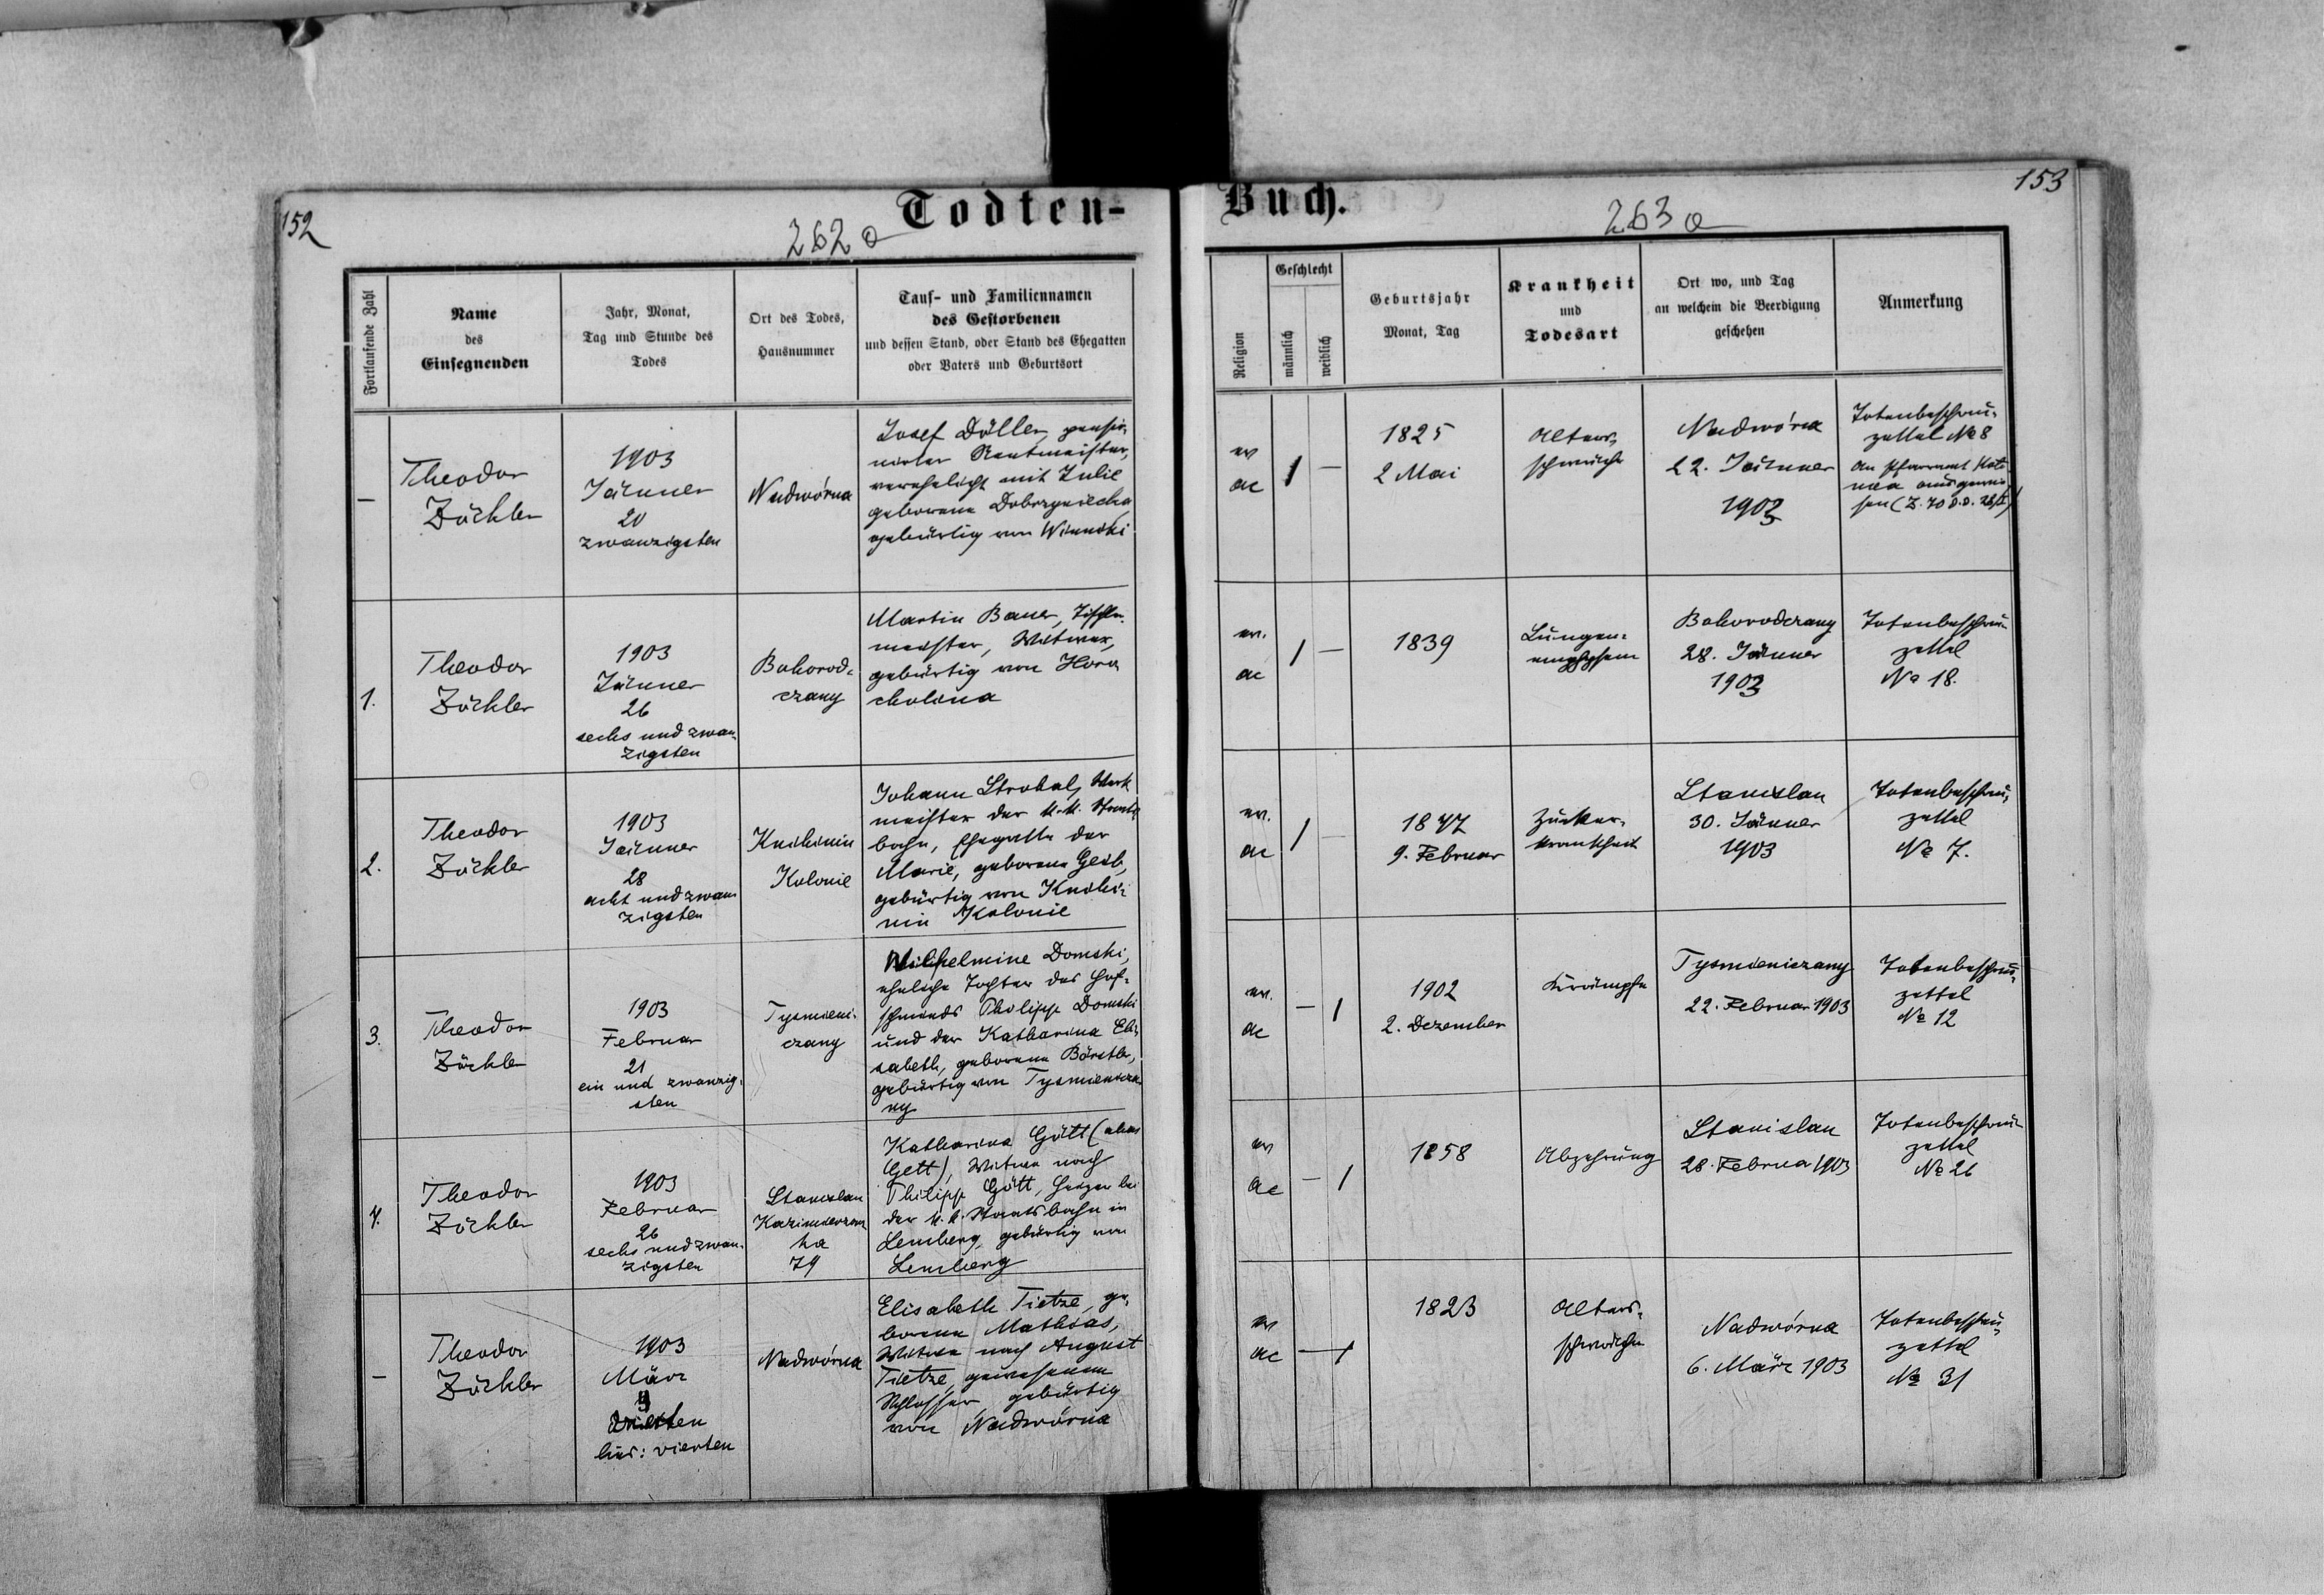 152
262a
Todten-
Fortlaufende Zahl
Name
des
Einsegnenden
Jahr, Monat,
Tag und Stunde des
Todes
Ort des Todes,
Hausnummer
Tauf- und Familiennamen
des Gestorbenen
und dessen Stand, oder Stand des Ehegatten
oder Vaters und Geburtsort
—
Theodor
Zöckler
1903
Jänner
20
zwanzigsten
Nadwórna
Josef Döller, pensio-
nirter Rentmeister,
verehelicht mit Julie
geborene
gebürtig von Winniki
1.
Theodor
Zöckler
1903
Jänner
26
sechs und zwan-
zigsten
Bohorod-
czany
Martin Bauer, Tischler-
meister, Witwer,
gebürtig von Horo
cholina
2.
Theodor
Zöckler
1903
Jänner
28
acht und zwan-
zigsten
Knihinin
Kolonie
Johann Strohal, Werk
meister der k.k. Staats
bahn, Ehegatte der
Marie, geborene Geib,
gebürtig von Knihi-
nin Kolonie
3.
Theodor
Zöckler
1903
Februar
21
ein und zwanzig-
sten
Tysmieni-
czany
Wilhelmine Domski,
eheliche Tochter des Huf-
schmieds Philipp Domski
und der Katharina Eli-
sabeth, geborene Börstler,
gebürtig von Tysmienicza
ny
4.
Theodor
Zöckler
1903
Februar
26
sechs und zwan-
zigsten
Stanislau
Kazimierzow
ka
79
Katharina Gött (alias
Gett), Witwe nach
Philipp Gött, Heizer bei
der k.k. Staatsbahn in
Lemberg, gebürtig von
Lemberg
—
Theodor
Zöckler
1903
März
4
dritten
lies: vierten
Nadwórna
Elisabeth Tietze, ge-
borene Mathias,
Witwe nach August
Tietze, gewesenen
Schlosser, gebürtig
von Nadwórna
153
263a
Buch.
Religion
Geschlecht
männlich
weiblich
Geburtsjahr
Monat, Tag
Krankheit
und
Todesart
Ort wo, und Tag
an welchem die Beerdigung
geschehen
Anmerkung
ev
ac
1
—
1825
2 Mai
Alters-
schwäche
Nadwórna
22. Jänner
1903
Totenbeschau-
zettel № 8
an Pfarramt
ausgewie-
sen (Z. 70
ev.
ac
1
—
1839
Lungen-
emphysem
Bohorodczany
28. Jänner
1903
Totenbeschau-
zettel
№ 18.
ev.
ac
1
—
1847
9. Februar
Zucker-
krankheit
Stanislau
30. Jänner
1903
Totenbeschau-
zettel
№ 7.
ev.
ac
—
1
1902
2. Dezember
Krämpfe
Tysmieniczany
22. Februar 1903
Totenbeschau-
zettel
№ 12
ev
ac
—
1
1858
Abzehrung
Stanislau
28. Februar 1903
Totenbeschau-
zettel
№ 26
ev
ac
—
1
1823
Alters-
schwäche
Nadwórna
6. März 1903
Totenbeschau-
zettel
№ 31